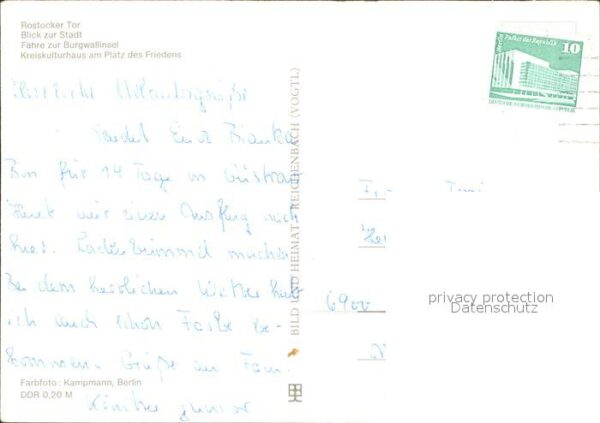 Rostocker Tor
Blick zur Stadt
Fähre zur Burgwallinsel
Kreiskulturhaus am Platz des Friedens
Herzliche Urlaubsgrüße
sendet Euch Bianka
Bin für 14 Tage in Güstrow
einen Ausflug nach
machen
Bei dem herrlichen Wetter hab
ich auch schon Farbe be-
kommen. Grüße an Fam.
junior
Farbfoto: Kampmann, Berlin
DDR 0,20 M
BILD UND HEIMAT REICHENBACH (VOGTL)
Berlin Palast der Republik
10
DEUTSCHE DEMOKRATISCHE REPUBLIK
6900
privacy protection
Datenschutz